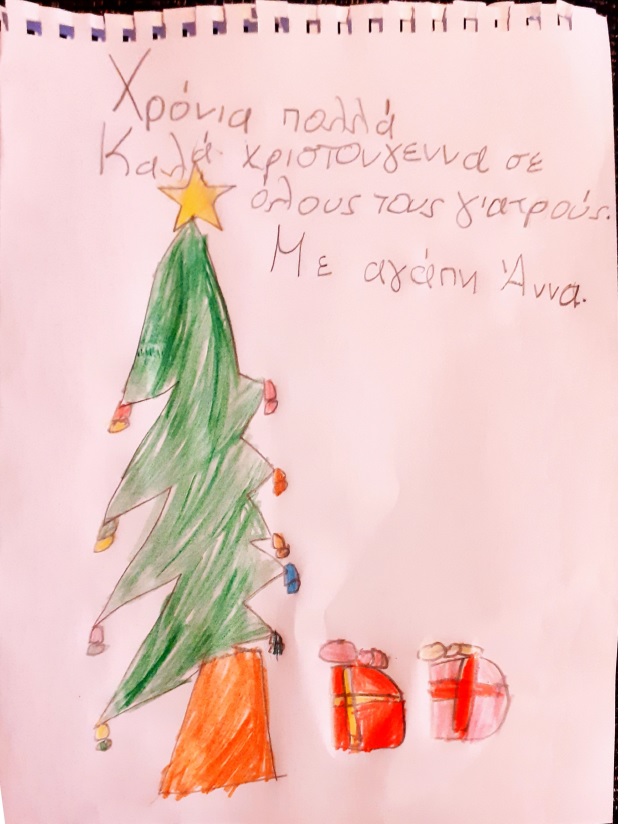 Χρόνια πολλά
Καλά χριστουγεννα σε
όλους τους γιατρούς.
Με αγάπη Άννα.